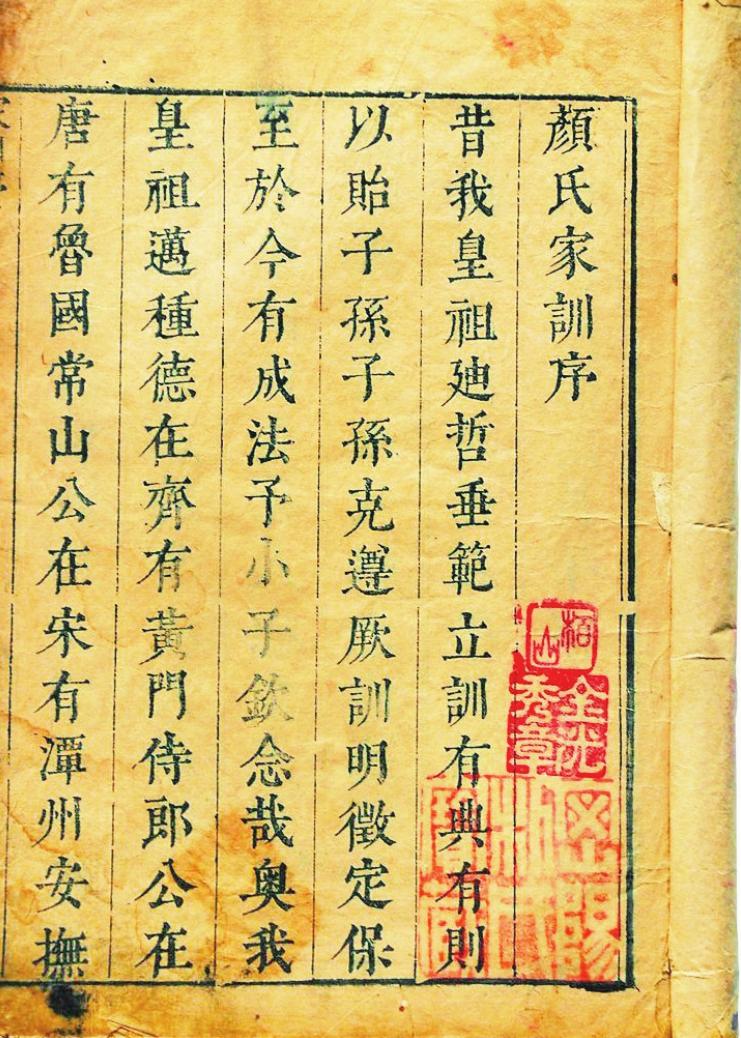 顏氏家訓序
昔我皇祖廸哲垂範立訓有典有則
以貽子孫子孫克遵厥訓明徵定保
至於今有成法予小子欽念哉奥我
皇祖邁種德在齊有黃門侍郎公在
唐有魯國常山公在宋有潭州安撫
栢山
金光
秀章